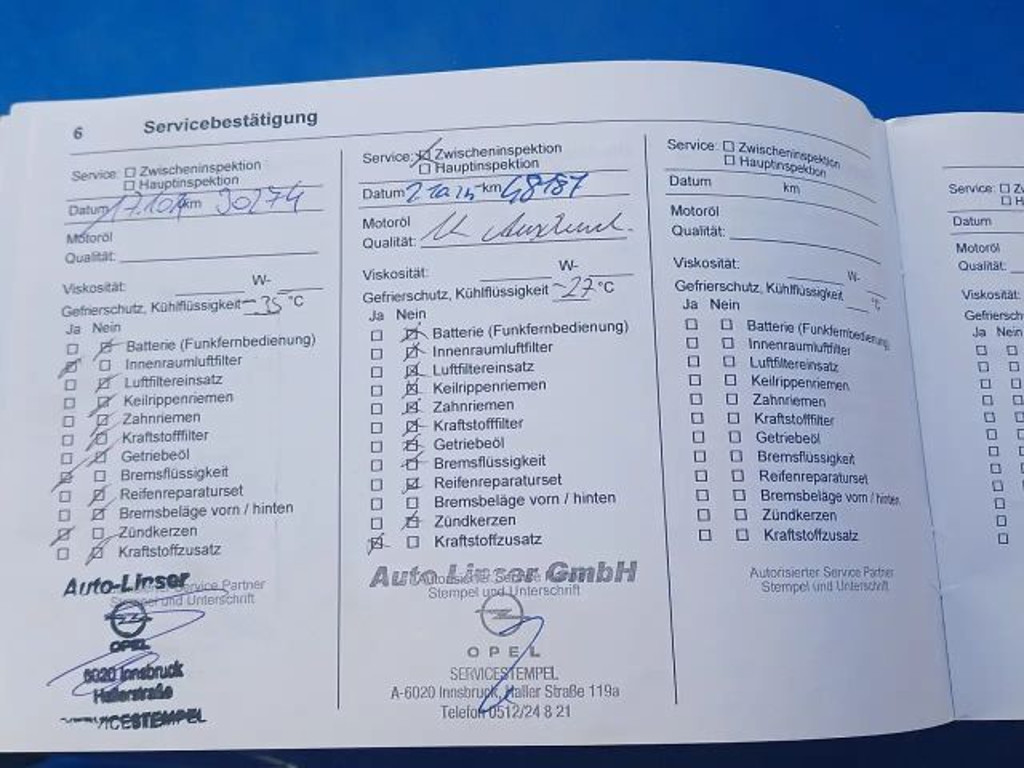 6 Servicebestätigung
Service: Zwischeninspektion
Hauptinspektion
Datum 17.10 km 30274
Motoröl
Qualität:
Viskosität: W-
Gefrierschutz, Kühlflüssigkeit -35 °C
Ja Nein
Batterie (Funkfernbedienung)
Innenraumluftfilter
Luftfiltereinsatz
Keilrippenriemen
Zahnriemen
Kraftstofffilter
Getriebeöl
Bremsflüssigkeit
Reifenreparaturset
Bremsbeläge vorn / hinten
Zündkerzen
Kraftstoffzusatz
Auto-Linser
Service Partner
Stempel und Unterschrift
OPEL
6020 Innsbruck
Hallerstraße
SERVICESTEMPEL
Service: Zwischeninspektion
Hauptinspektion
Datum km 48187
Motoröl
Qualität:
Viskosität: W-
Gefrierschutz, Kühlflüssigkeit -27 °C
Ja Nein
Batterie (Funkfernbedienung)
Innenraumluftfilter
Luftfiltereinsatz
Keilrippenriemen
Zahnriemen
Kraftstofffilter
Getriebeöl
Bremsflüssigkeit
Reifenreparaturset
Bremsbeläge vorn / hinten
Zündkerzen
Kraftstoffzusatz
Auto Linser GmbH
Autorisierter Service
Stempel und Unterschrift
OPEL
SERVICESTEMPEL
A-6020 Innsbruck, Haller Straße 119a
Telefon 0512/24 8 21
Service: Zwischeninspektion
Hauptinspektion
Datum km
Motoröl
Qualität:
Viskosität: W-
Gefrierschutz, Kühlflüssigkeit °C
Ja Nein
Batterie (Funkfernbedienung)
Innenraumluftfilter
Luftfiltereinsatz
Keilrippenriemen
Zahnriemen
Kraftstofffilter
Getriebeöl
Bremsflüssigkeit
Reifenreparaturset
Bremsbeläge vorn / hinten
Zündkerzen
Kraftstoffzusatz
Autorisierter Service Partner
Stempel und Unterschrift
Service: Z
H
Datum
Motoröl
Qualität:
Viskosität:
Gefriersch
Ja Nein